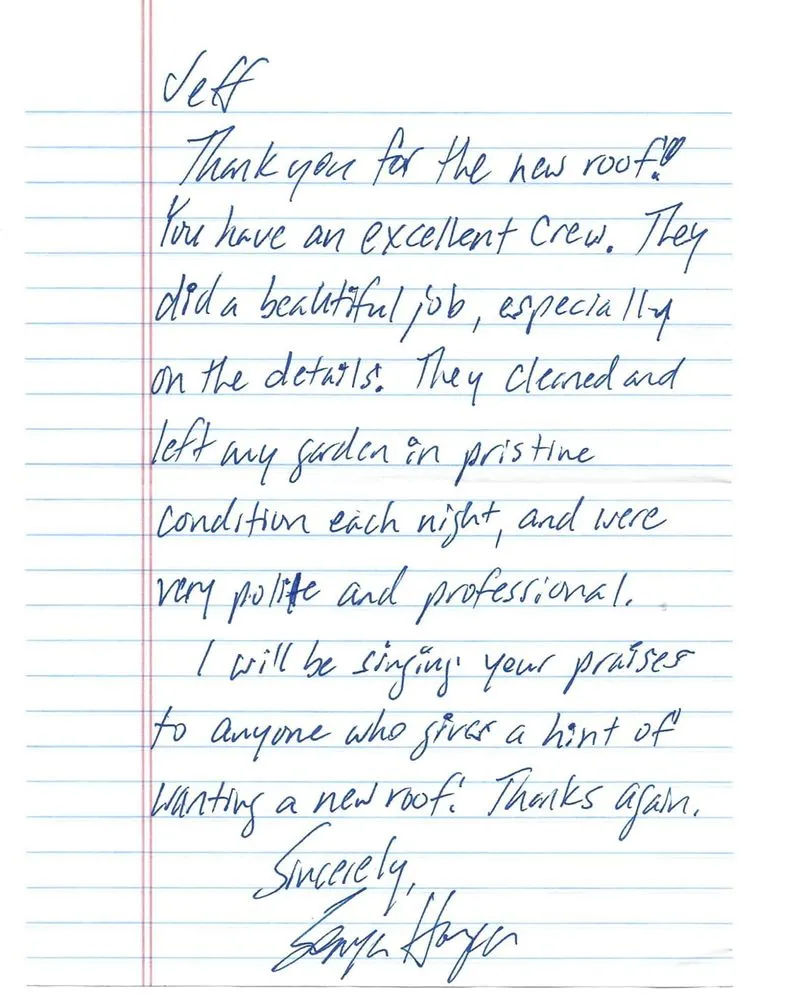 Jeff
Thank you for the new roof!
You have an excellent crew. They
did a beautiful job, especially
on the details. They cleaned and
left my garden in pristine
condition each night, and were
very polite and professional.
I will be singing your praises
to anyone who gives a hint of
wanting a new roof! Thanks again.
Sincerely,